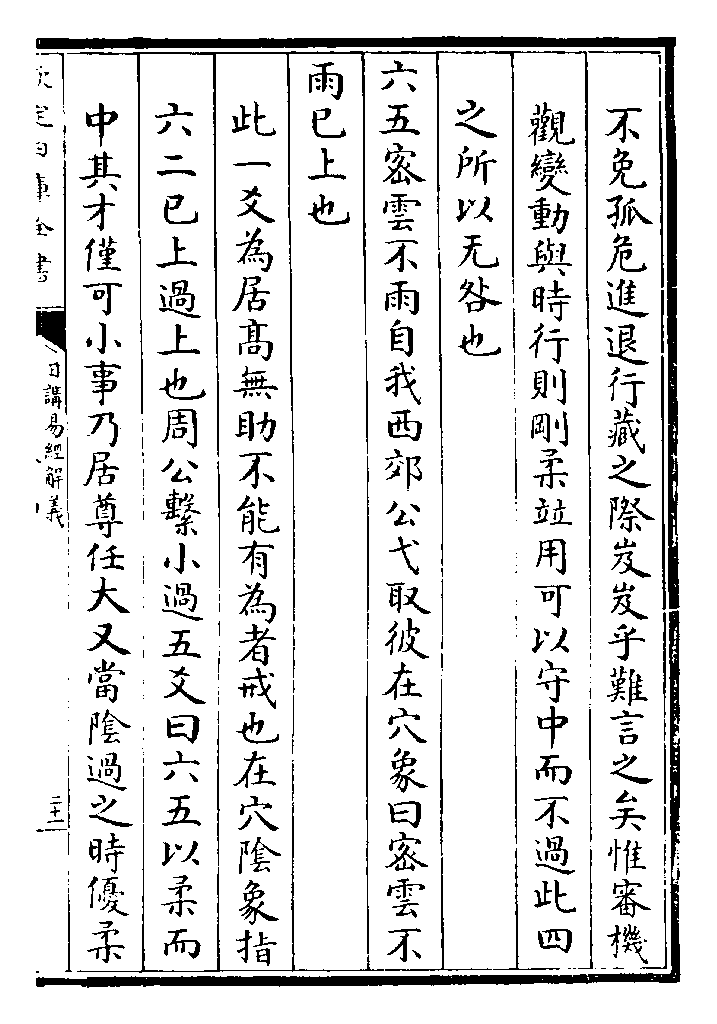 不免孤危進退行藏之際岌岌乎難言之矣惟審機
觀變動與時行則剛柔竝用可以守中而不過此四
之所以无咎也
六五密雲不雨自我西郊公弋取彼在穴象曰密雲不
雨已上也
此一爻為居髙無助不能有為者戒也在穴陰象指
六二已上過上也周公繫小過五爻曰六五以柔而
中其才僅可小事乃居尊任大又當陰過之時優柔
欽定四庫全書
日講易經解義